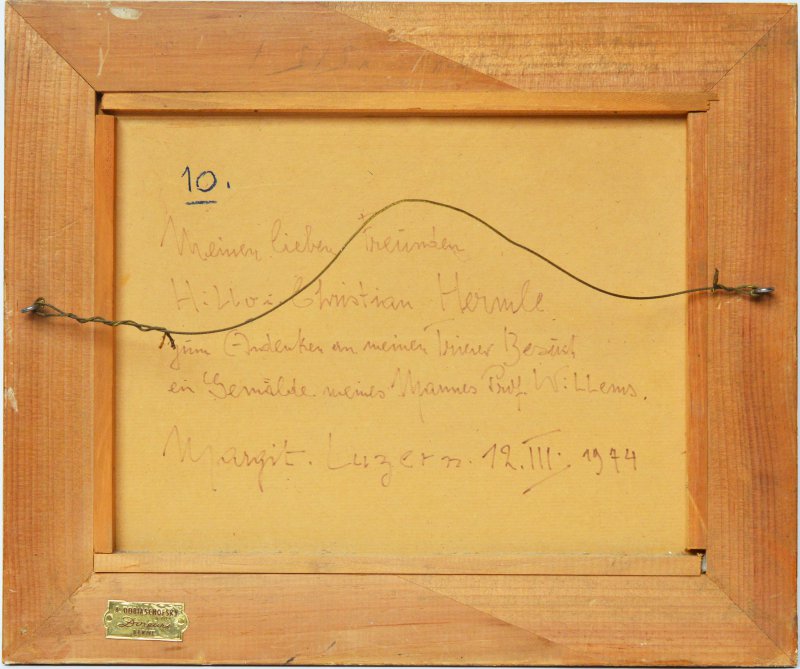 10.
Meinen lieben Freunden
Christian Hermle
zum Andenken an meinen Trierer Besuch
ein Gemälde meines Mannes Prof. Willems.
Margit. Luzern. 12.III. 1974
DOBIASCHOFSKY
Doreurs
BERNE